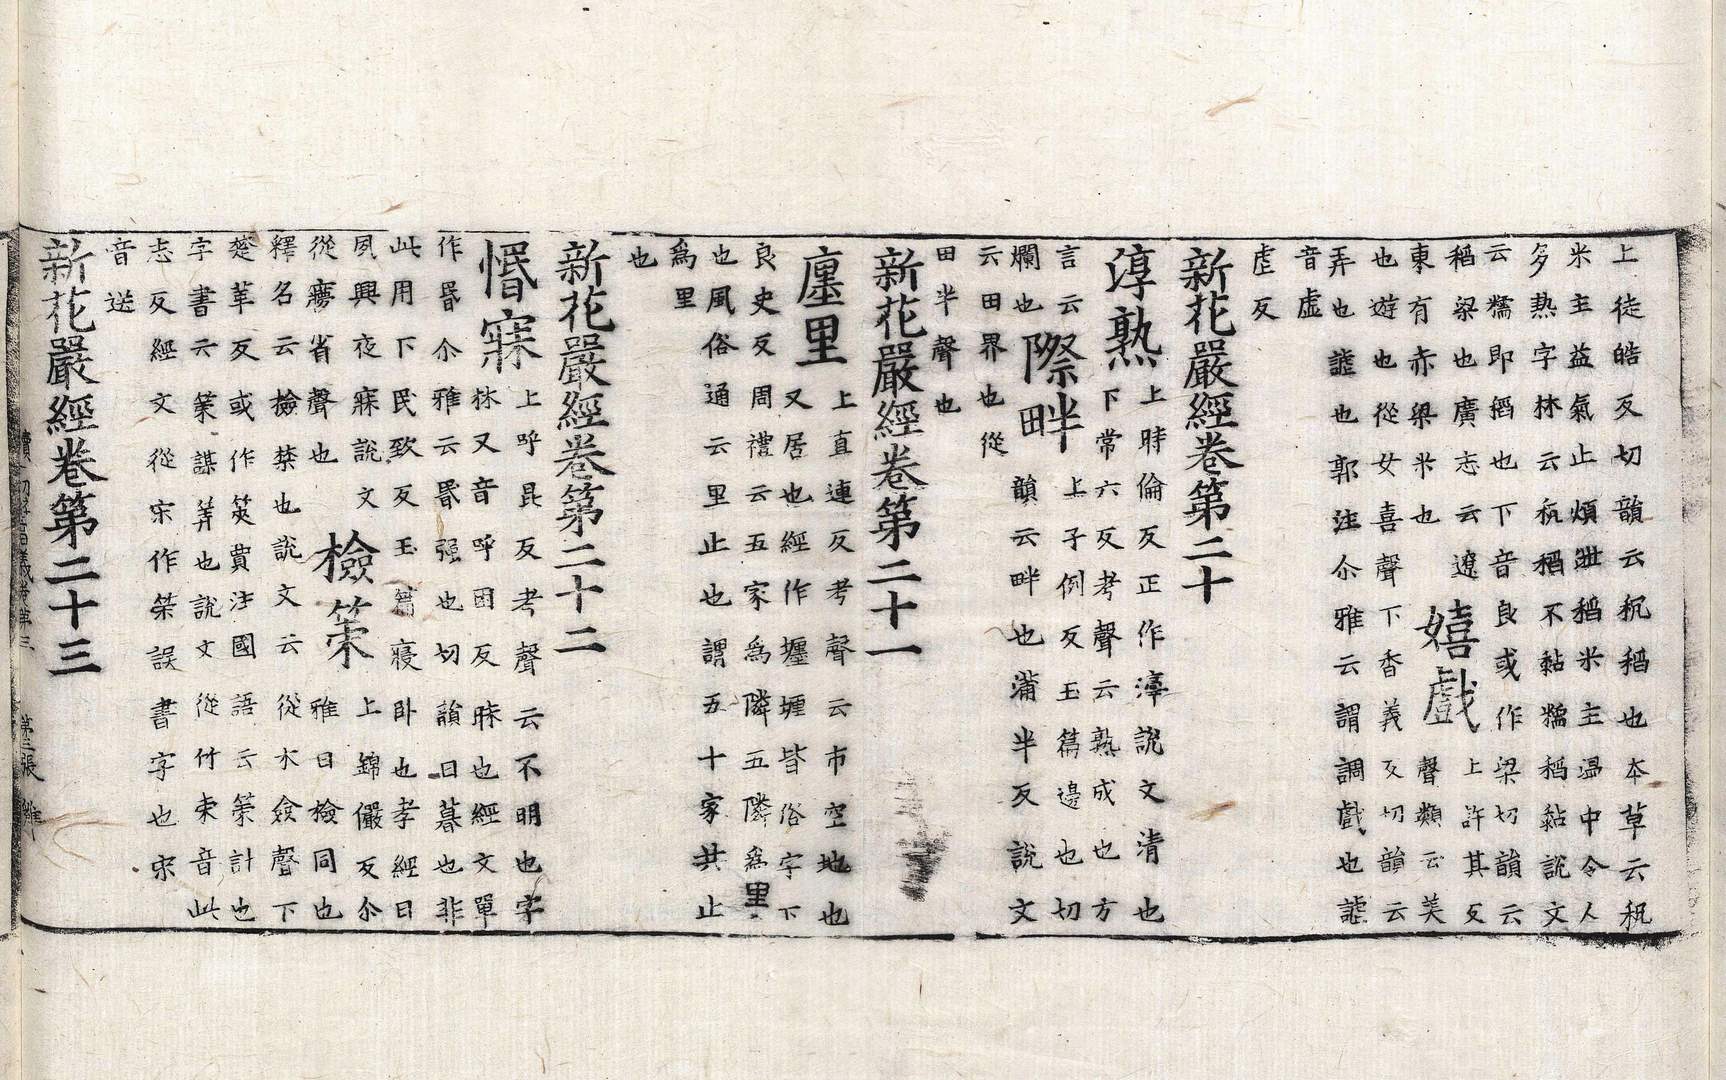 上徒皓反切韻云秔稻也本草云秔
米主益氣止煩泄稻米主温中令人
多熱字林云秔稻不黏糯稻黏說文
云糯即稻也下音良或作梁切韻云
稻梁也廣志云遼
東有赤梁米也
嬉戲
上許其反
聲類云美
也遊也從女喜聲下香義反切韻云
弄也謔也郭注尒雅云謂調戲也謔
音虛
虐反
新花嚴經卷第二十
淳熟
上時倫反正作說文清也
下常六反考聲云熟成也方
言云
爛也
際畔
上子例反玉篇邊也切
韻云畔也蒲半反說文
云田界也從
田半聲也
新花嚴經卷第二十一
廛里
上直連反考聲云市空地也
又居也經作壥堙皆俗字下
良史反周禮云五家為隣五隣為里
也風俗通云里止也謂五十家共止
為里
也
新花嚴經卷第二十二
惽寐
上呼昆反考聲云不明也字
林又音呼困反昧也經文單
作昬尒雅云昬强也切韻日暮也非
此用下民致反玉篇寢卧也孝經曰
夙興夜寐說文
從㝱省聲也
檢策
上錦儼反尒
雅曰檢同也
釋名云檢禁也說文云從木僉聲下
楚革反或作筴賈注國語云策計也
字書云策謀筭也說文從竹朿音此
恣反經文從宋作筞誤書字也宋
音送
新花嚴經卷第二十三
續一切經音義卷第三 第三張